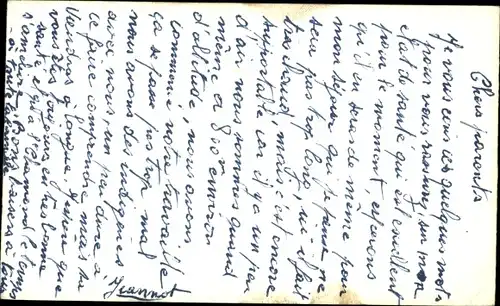 Chers parents
Je vous écris ces quelques mots
pour vous rassurez sur mon
état de santé qui est excellent
pour le moment, espérons
qu'il en sera de même pour
mon séjour qui je pense ne
sera pas trop long, ici il fait
très chaud, mais c'est encore
supportable car il y a un peu
d'air nous sommes quand
même à 800 m environ
d'altitude, nous avons
commencé notre travaille
ça se passe pas trop mal
nous avons des indigènes
avec nous, un peu dure à
ce faire comprendre mais
à longue. J'espère que
vous êtes toujours en très bonne
santé et que
Jeannot